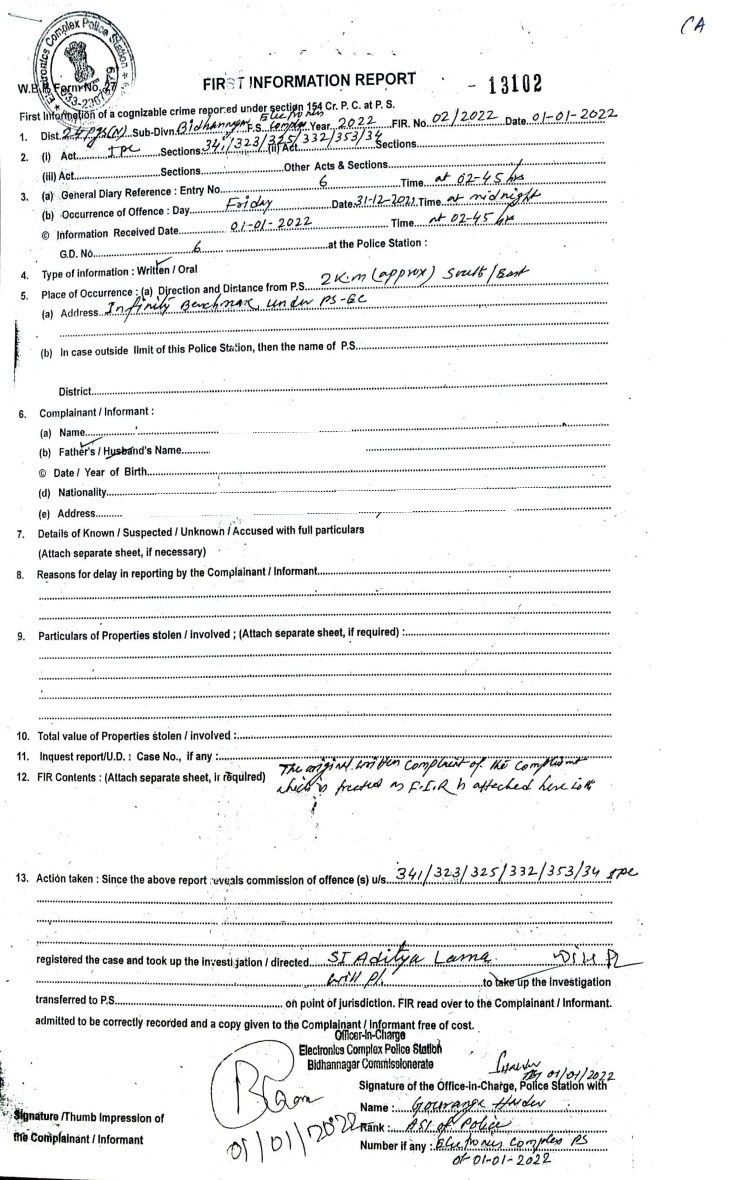 CA
Electronics Complex Police Station
FIRST INFORMATION REPORT - 13102
W.B. Form No.
First Information of a cognizable crime reported under section 154 Cr. P. C. at P. S.
1. Dist. 24 Pgs(N) Sub-Divn. Bidhannagar P.S. Electronics Complex Year 2022 FIR. No. 02/2022 Date 01-01-2022
2. (i) Act IPC Sections 341/323/325/332/353/34 (ii) Act Sections
(iii) Act Sections Other Acts & Sections
3. (a) General Diary Reference : Entry No. 6 Time at 02-45 hrs
(b) Occurrence of Offence : Day Friday Date 31-12-2021 Time at midnight
© Information Received Date 01-01-2022 Time at 02-45 hrs
G.D. No. 6 at the Police Station :
4. Type of information : Written / Oral
5. Place of Occurrence : (a) Direction and Distance from P.S. 2 K.m (approx) South/East
(a) Address Infinity Benchmark, under PS-EC
(b) In case outside limit of this Police Station, then the name of P.S.
District
6. Complainant / Informant :
(a) Name
(b) Father's / Husband's Name
© Date / Year of Birth
(d) Nationality
(e) Address
7. Details of Known / Suspected / Unknown / Accused with full particulars
(Attach separate sheet, if necessary)
8. Reasons for delay in reporting by the Complainant / Informant
9. Particulars of Properties stolen / involved ; (Attach separate sheet, if required) :
10. Total value of Properties stolen / involved :
11. Inquest report/U.D. : Case No., if any :
12. FIR Contents : (Attach separate sheet, if required) The original written complaint of the complainant
which is treated as F.I.R is attached here with
13. Action taken : Since the above report reveals commission of offence (s) u/s 341/323/325/332/353/34 IPC
registered the case and took up the investigation / directed SI Aditya Lama
will pl. to take up the investigation
transferred to P.S. on point of jurisdiction. FIR read over to the Complainant / Informant.
admitted to be correctly recorded and a copy given to the Complainant / Informant free of cost.
Officer-In-Charge
Electronics Complex Police Station
Bidhannagar Commissionerate
01/01/2022
Signature of the Office-in-Charge, Police Station with
Name : Gouranga Halder
Signature /Thumb Impression of
01/01/2022
Rank : ASI of Police
the Complainant / Informant
Number if any : Electronics Complex PS
01-01-2022